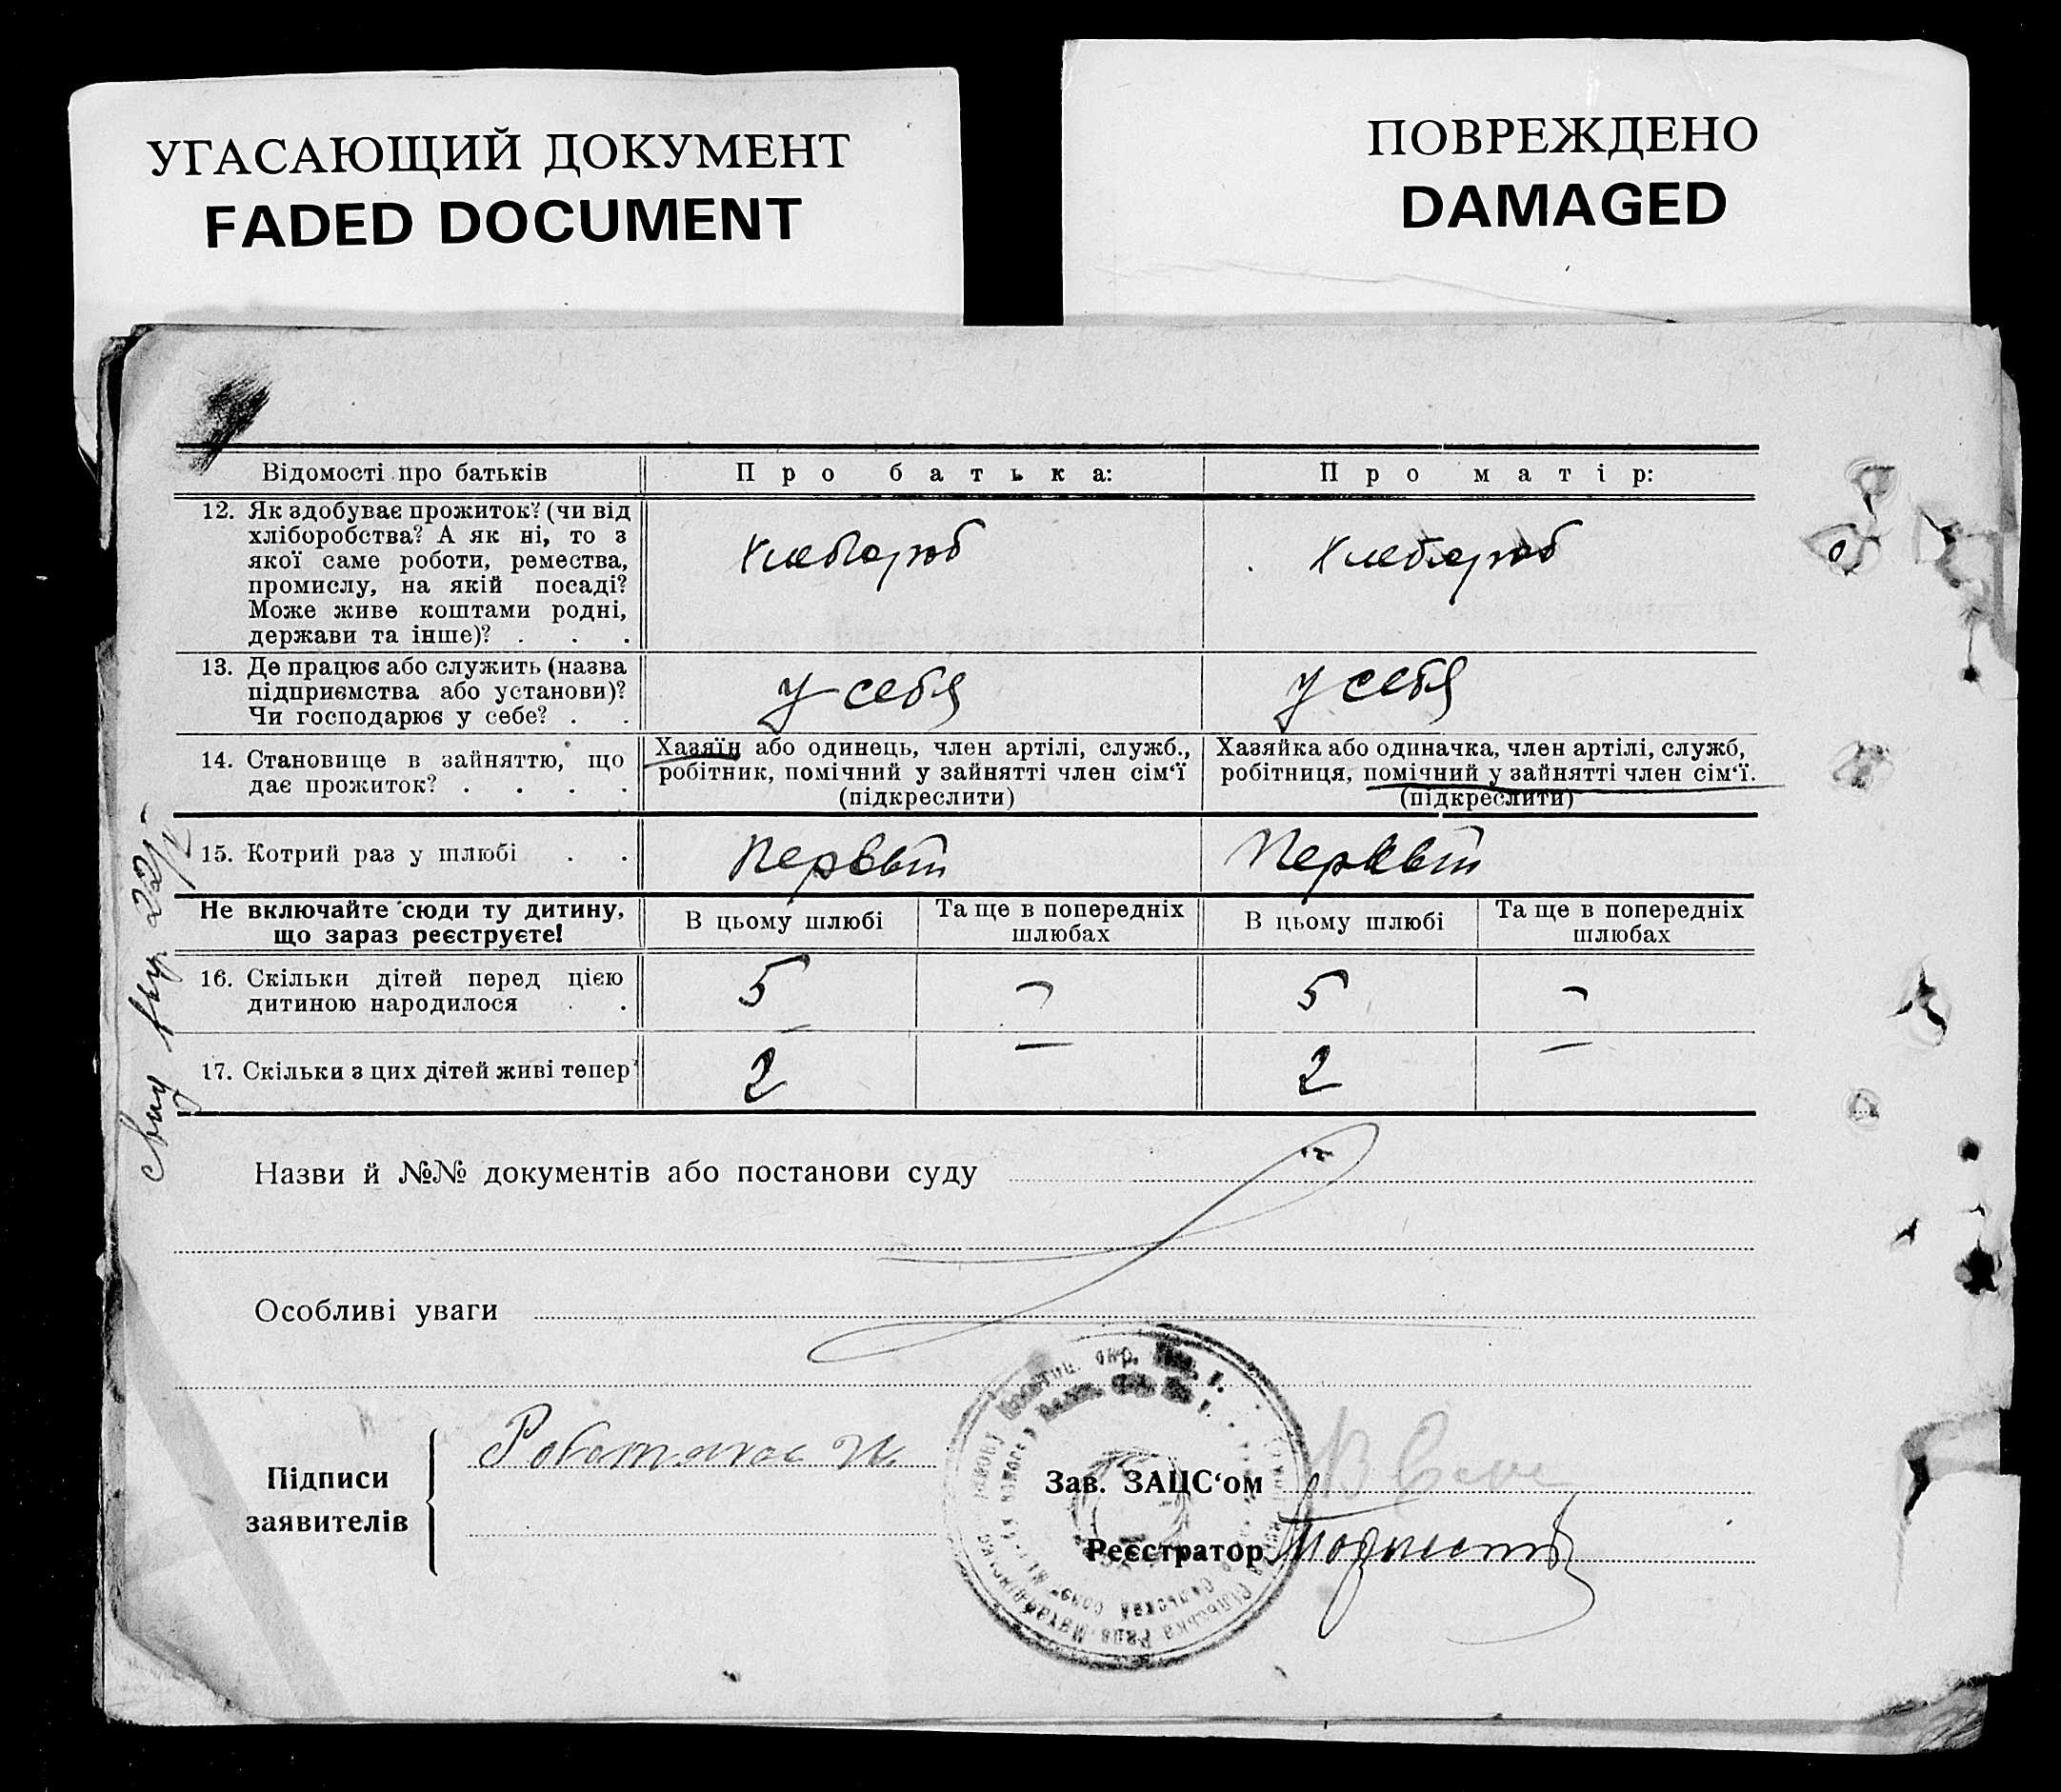 УГАСАЮЩИЙ ДОКУМЕНТ
FADED DOCUMENT
ПОВРЕЖДЕНО
DAMAGED
Відомості про батьків
Про батька:
Про матір:
12. Як здобуває прожиток? (чи від
хліборобства? А як ні, то з
якої саме роботи, ремества,
промислу, на якій посаді?
Може живе коштами родні,
держави та інше)? . . .
Хлебороб
Хлебороб
13. Де працює або служить (назва
підприємства або установи)?
Чи господарює у себе? . .
у себя
у себя
14. Становище в зайняттю, що
дає прожиток? . . . .
Хазяїн або одинець, член артілі, служб.,
робітник, помічний у зайнятті член сім‘ї
(підкреслити)
Хазяйка або одиначка, член артілі, служб,
робітниця, помічний у зайнятті член сім‘ї.
(підкреслити)
15. Котрий раз у шлюбі . .
Первый
Первый
Не включайте сюди ту дитину,
що зараз реєструєте!
В цьому шлюбі
Та ще в попередніх
шлюбах
В цьому шлюбі
Та ще в попередніх
шлюбах
16. Скільки дітей перед цією
дитиною народилося . .
5
—
5
—
17. Скільки з цих дітей живі тепер?
2
—
2
—
Назви й №№ документів або постанови суду
Особливі уваги
Підписи
заявителів
Зав. ЗАЦС‘ом
Реєстратор
окр.
Сільська Рада